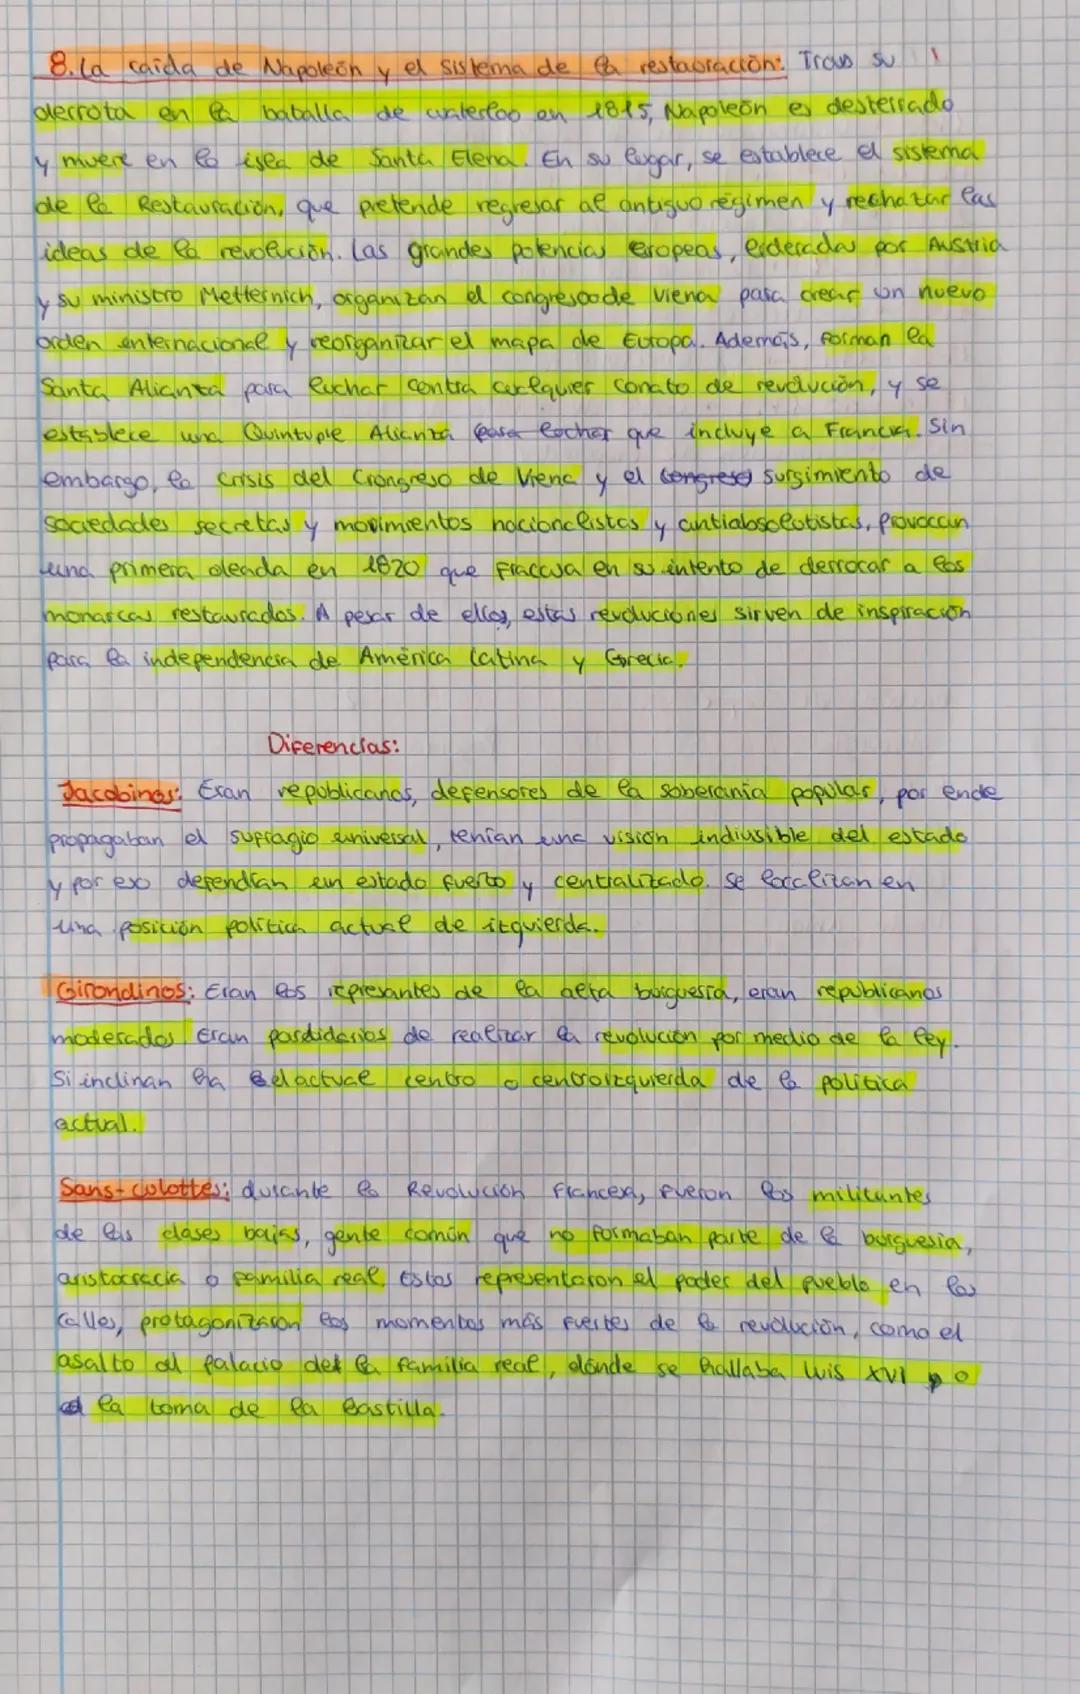 8. La caída de Napoleón y el sistema de la restauración: Tras su
derrota en la batalla de waterloo en 1815, Napoleón es desterrado
y muere en la isla de Santa Elena. En su lugar, se establece el sistema
de la Restauración, que pretende regresar al antiguo régimen y rechazar las
ideas de la revolución. Las grandes potencias europeas, lideradas por Austria
y su ministro Metternich, organizan el congreso de Viena para crear un nuevo
orden internacional y reorganizar el mapa de Europa. Además, forman la
Santa Alianza para luchar contra cualquier conato de revolución, y se
establece una Quíntuple Alianza para luchar que incluye a Francia. Sin
embargo, la crisis del Congreso de Viena y el congreso surgimiento de
sociedades secretas y movimientos nacionalistas y antiabsolutistas, provocan
una primera oleada en 1820 que fracasa en su intento de derrocar a los
monarcas restaurados. A pesar de ellos, estas revoluciones sirven de inspiración
para la independencia de América Latina y Grecia.
Diferencias:
Jacobinos: Eran republicanos, defensores de la soberanía popular, por ende
propagaban el sufragio universal, tenían una visión indivisible del estado
y por eso defendían un estado fuerte y centralizado. Se localizan en
una posición política actual de izquierda.
Girondinos: Eran los represantes de la alta burguesía, eran republicanos
moderados. Eran pardidarios de realizar la revolución por medio de la ley.
Si inclinan ha el actual centro o centroizquierda de la política
actual.
Sans-culottes: durante la Revolución Francesa, fueron los militantes
de las clases bajas, gente común que no formaban parte de la burguesía,
aristocracia o familia real. Estos representaron el poder del pueblo en las
calles, protagonizaron los momentos más fuertes de la revolución, como el
asalto al palacio de la familia real, dónde se hallaba Luis XVI o
la toma de la Bastilla.